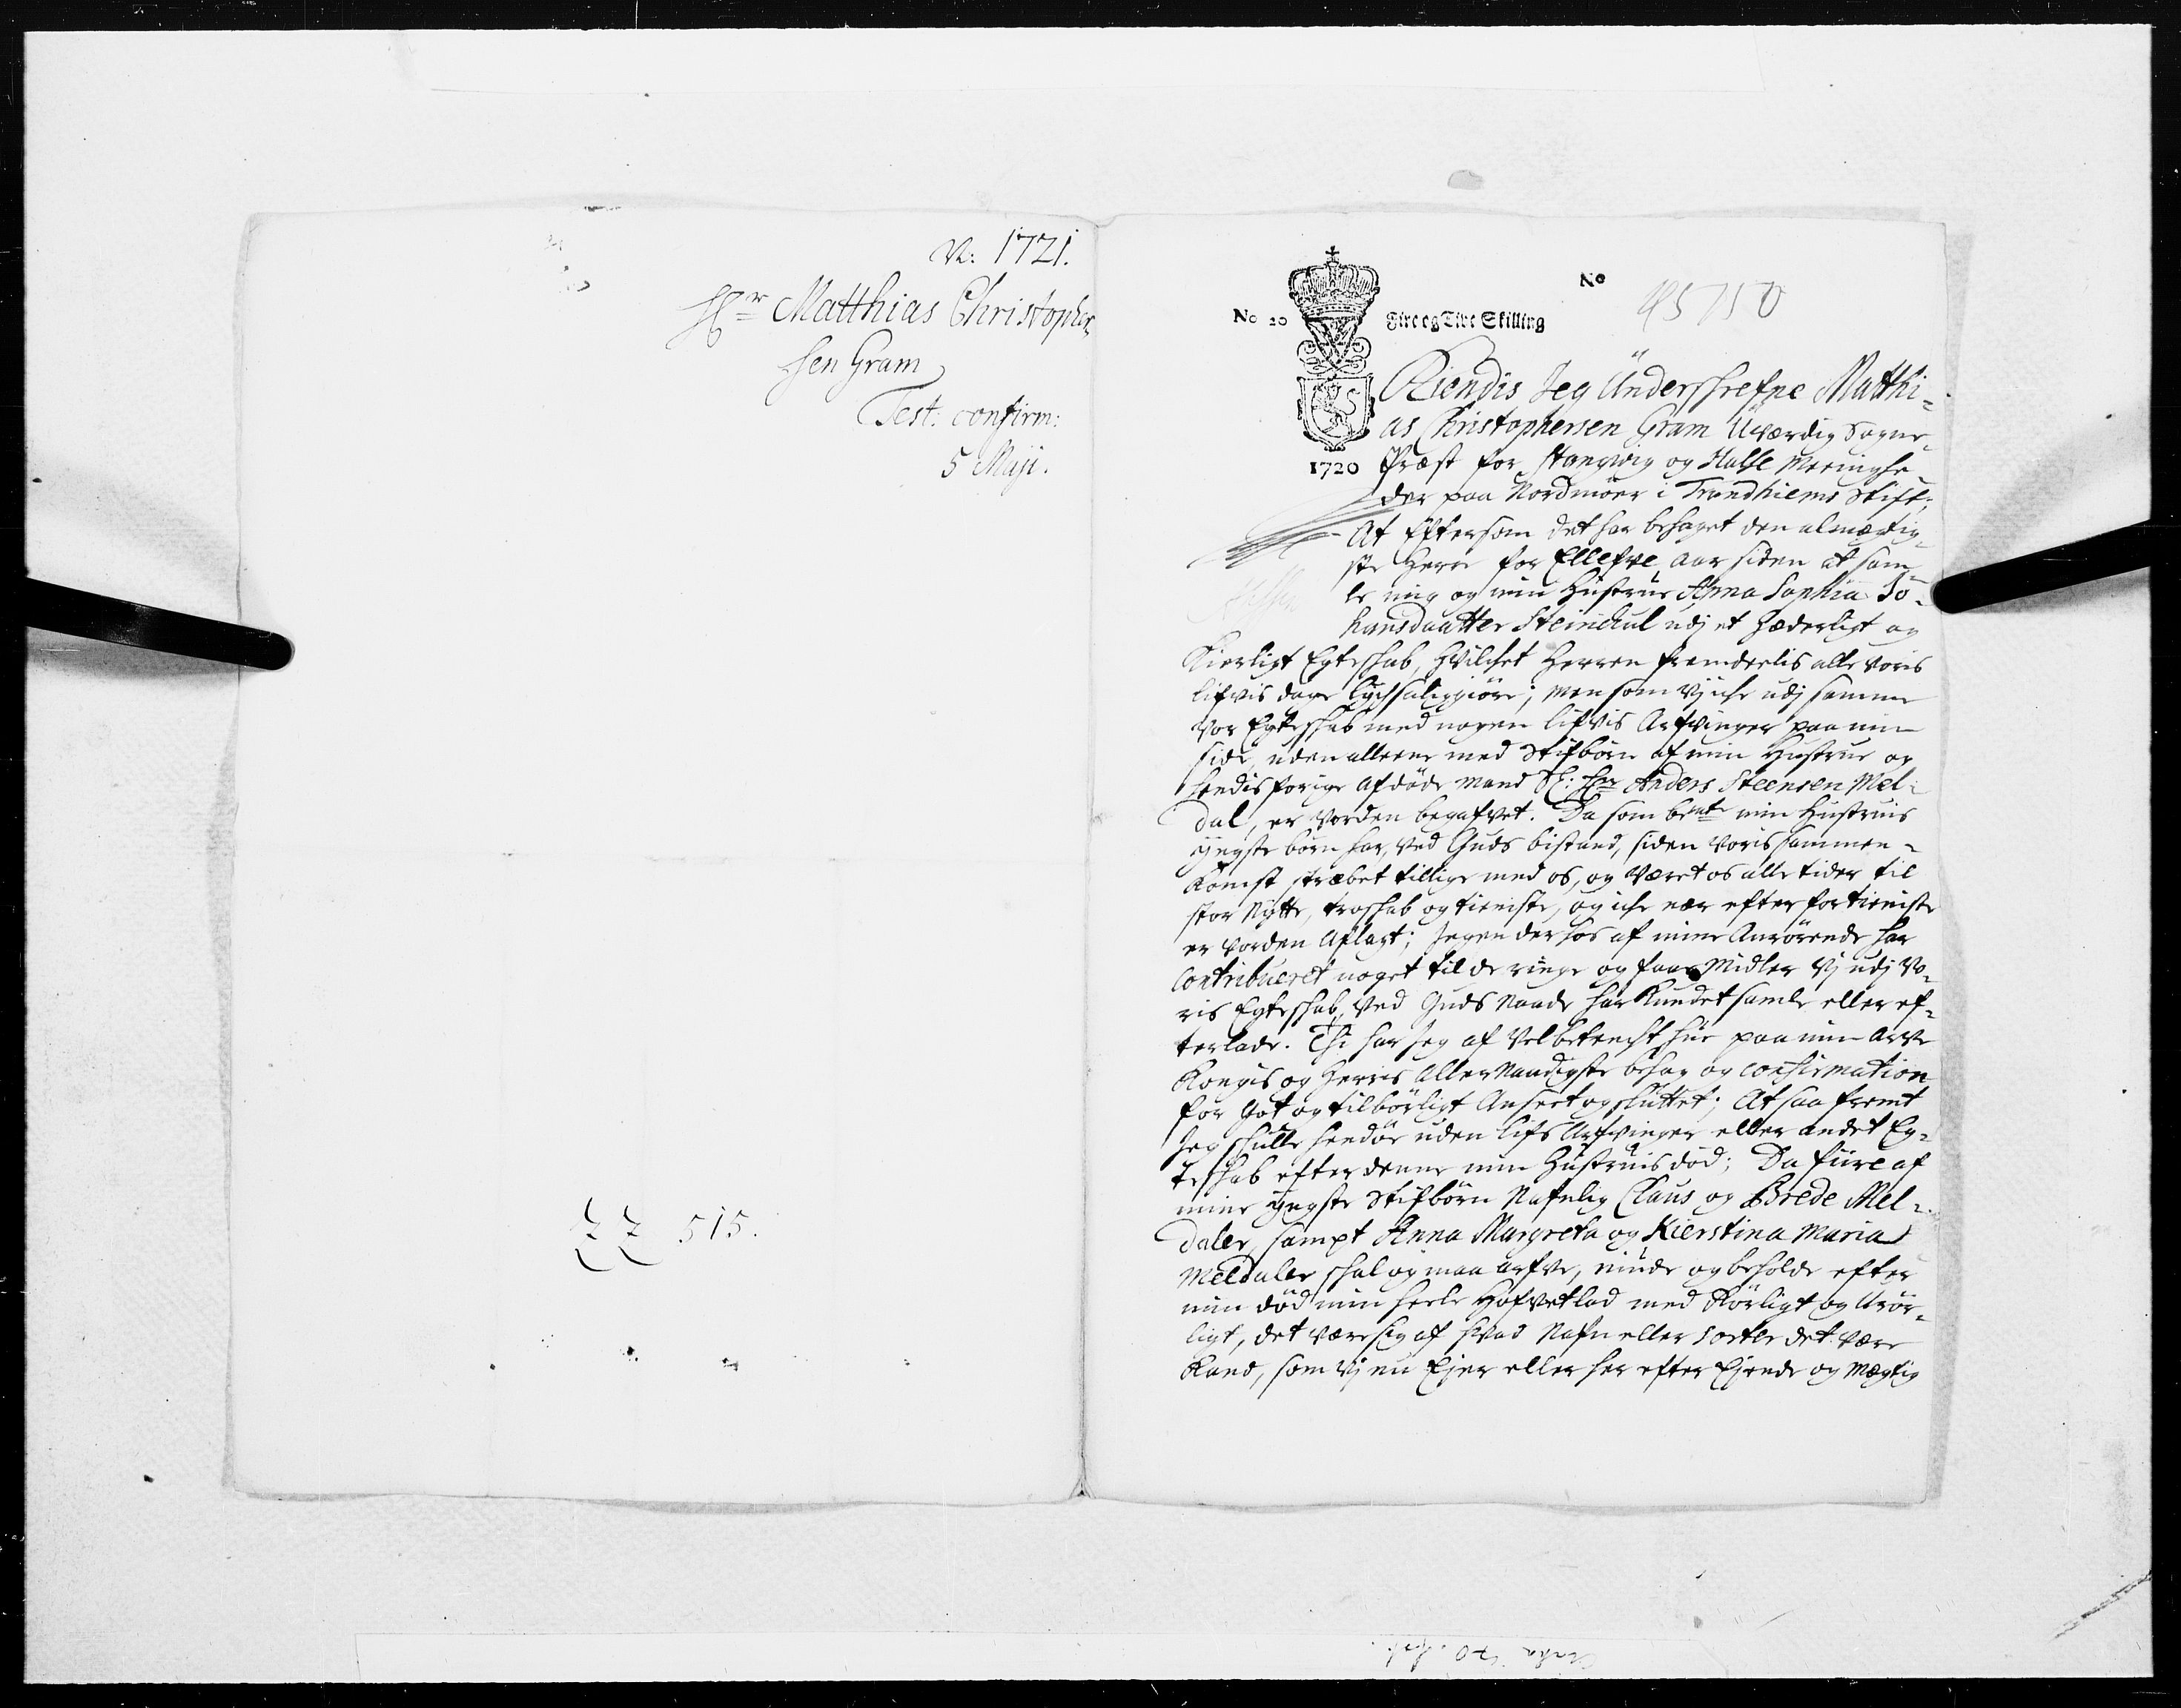 N: 1721.
Hr Matthias Christopher
sen Gram
Test. confirm:
5 Maji.
515.
No
95750
No 20
Fire og Tive Skilling
1720
Kiendis Jeg Underschrefne Matthi-
as Christophersen Gram Uværdig Sogne-
Præst for Stangvig og Halse Meenighe-
der paa Nordmöer i Trondhiems Stift;
At Eftersom det har behaget den almægtig-
ste Herre for Ellefve aar siden at sam-
le mig og min Hustrue Anna Sophia Jo-
hansdaatter Steinchul udj et hæderligt og
Kierligt Egteschab, hvilchet Herren fremdeelis alle voris
lifvis dage lychsaliggiöre; men som vj iche udj samme
vor Egteschab med nogen lifvis Arfvinger paa min
side, uden alleene med Stifbörn af min Hustrue og
hendis forige afdöde mand Sl: Hr Anders Steensen Mel-
dal, er vorden begafvet. Da som bente min Hustruis
yngste börn har, ved Guds bistand, siden voris sammen-
komst stræbet tillige med os, og været os alle tider til
stor Nytte, troschab og tieniste, og iche nær efter fortieniste
er vorden aflagt; Ingen der hos af mine Anrörende har
contribueret noget til de ringe og faae Midler vj udj vo-
ris Egteschab, ved Guds Naade har kundet samle eller ef-
terlade. Thi har Jeg af Velbetencht hue paa min Arve
Kongis og Herris Aller Naadigste behag og confirmation
for got og tilbörligt Anseet og sluttet; At saa fremt
Jeg schulle hendöe uden lifs Arfvinger eller andet Eg-
teschab efter denne min Hustruis död; Da fiire af
mine yngste Stifbörn Nafnlig Claus og Brede Mel-
daler, sampt Anna Margreta og Kierstina Maria
Meldaler schal og maa arfve, niude og beholde efter
min död min heele Hofvetlod med Rörligt og Urör-
ligt, det være sig af hvad Nafn eller sorter det være
kand, som vj nu Ejer eller her efter Ejende og Mægtig